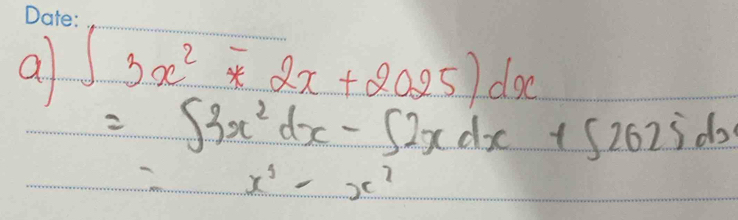 Date:
a) ∫ 3x² - * 2x + 2025) dx
= ∫3x² dx - ∫2x dx + ∫2025 dx
= x³ - x²